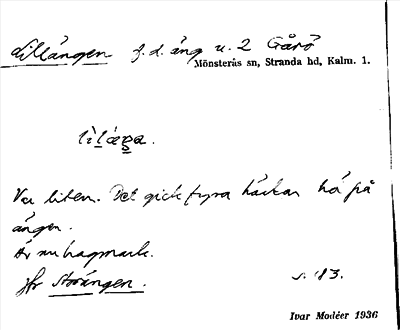 Lillängen f.d. äng u. 2 Gårö
Mönsterås sn, Stranda hd, Kalm. 1.
Var liten. Det gick fyra häckar hö på
ängen.
Är nu hagmark.
Jfr Storängen. s. 83.
Ivar Modéer 1936